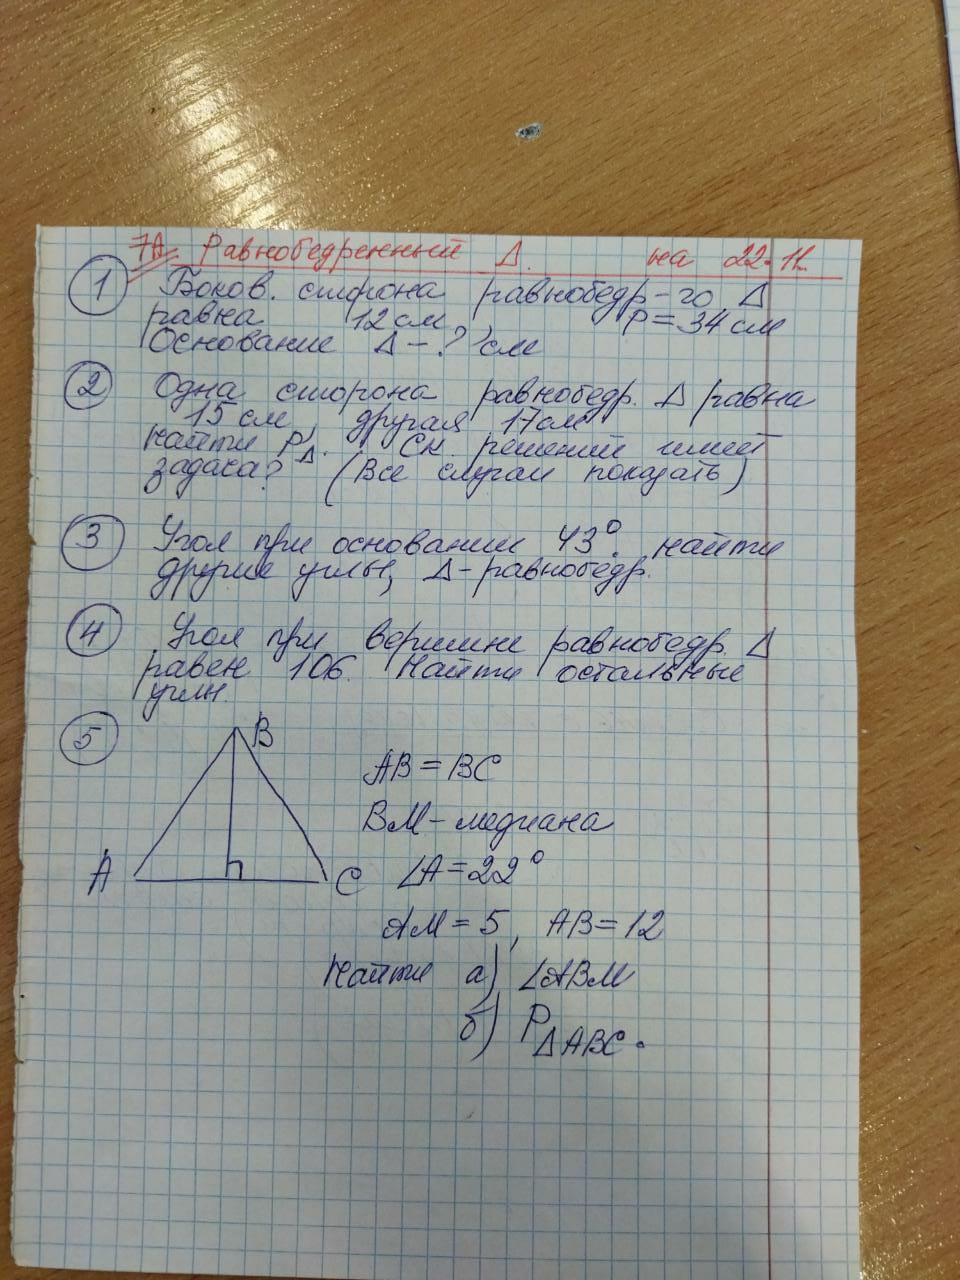 7А Равнобедренный Δ. на 22.11.
1 Боков. сторона равнобедр-го Δ
равна 12 см, P = 34 см
Основание Δ - ? см
2 Одна сторона равнобедр. Δ равна
15 см, другая 17 см
Найти P Δ. Ск. решений имеет
задача? (Все случаи показать)
3 Угол при основании 43°. Найти
другие углы, Δ - равнобедр.
4 Угол при вершине равнобедр. Δ
равен 106. Найти остальные
углы.
5 B
AB = BC
BM - медиана
A C ∠A = 22°
AM = 5, AB = 12
Найти а) ∠ABM
б) P ΔABC.